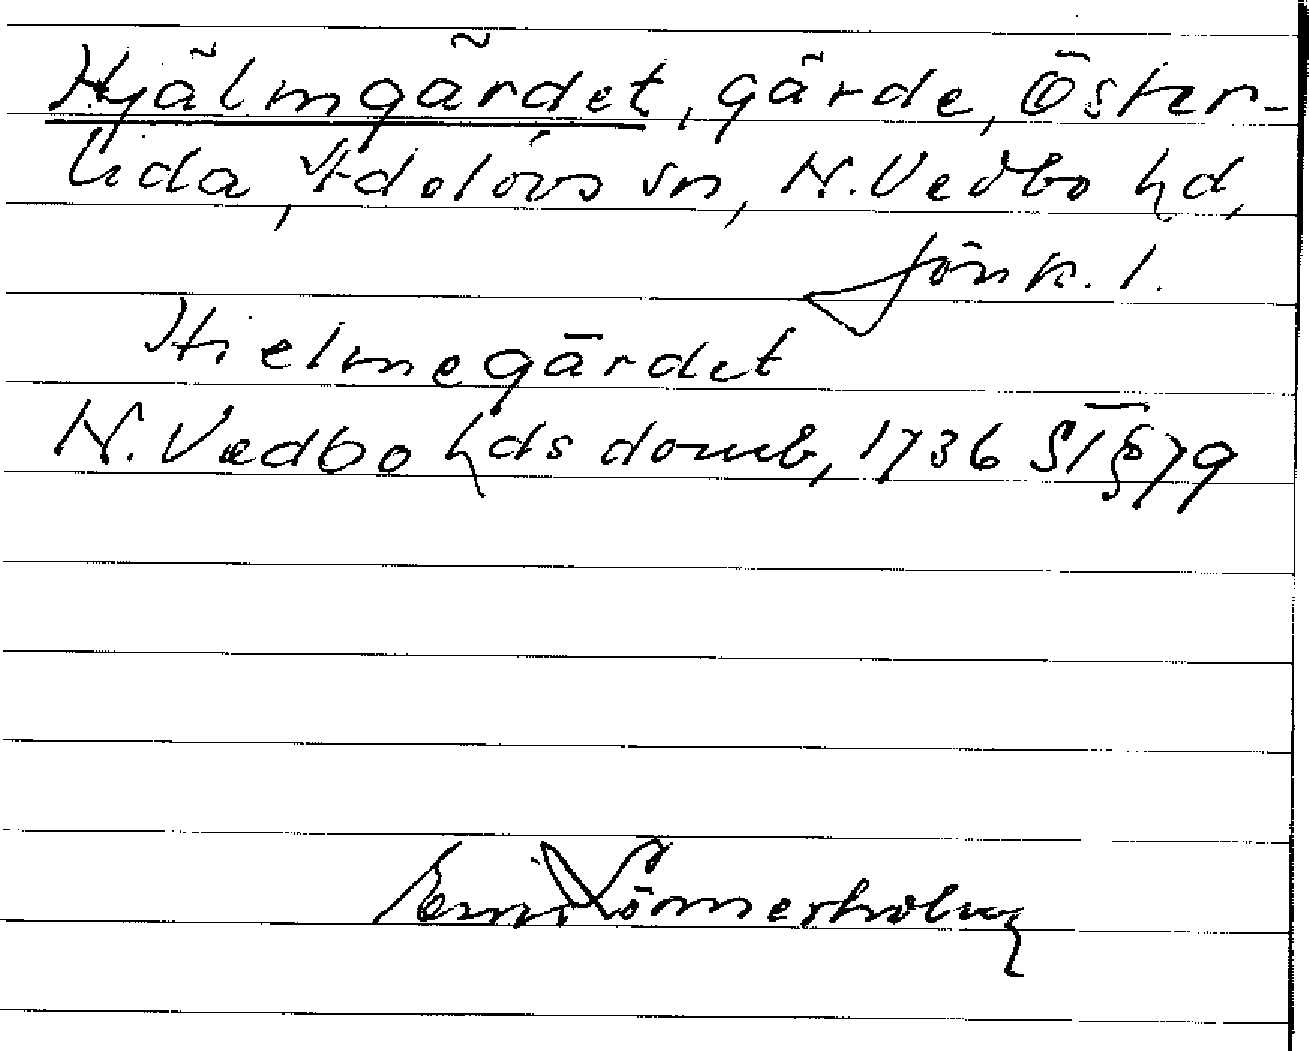 Hjälmgärdet, gärde, Öster-
lida, Adelövs sn, N. Vedbo hd,
Jönk. l.
Hielmegärdet
N. Vedbo hds domb, 1736 S I § 79